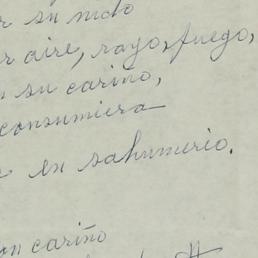 r su nido
r aire, rayo, fuego,
su cariño,
consumiera
en sahumerio.
un cariño